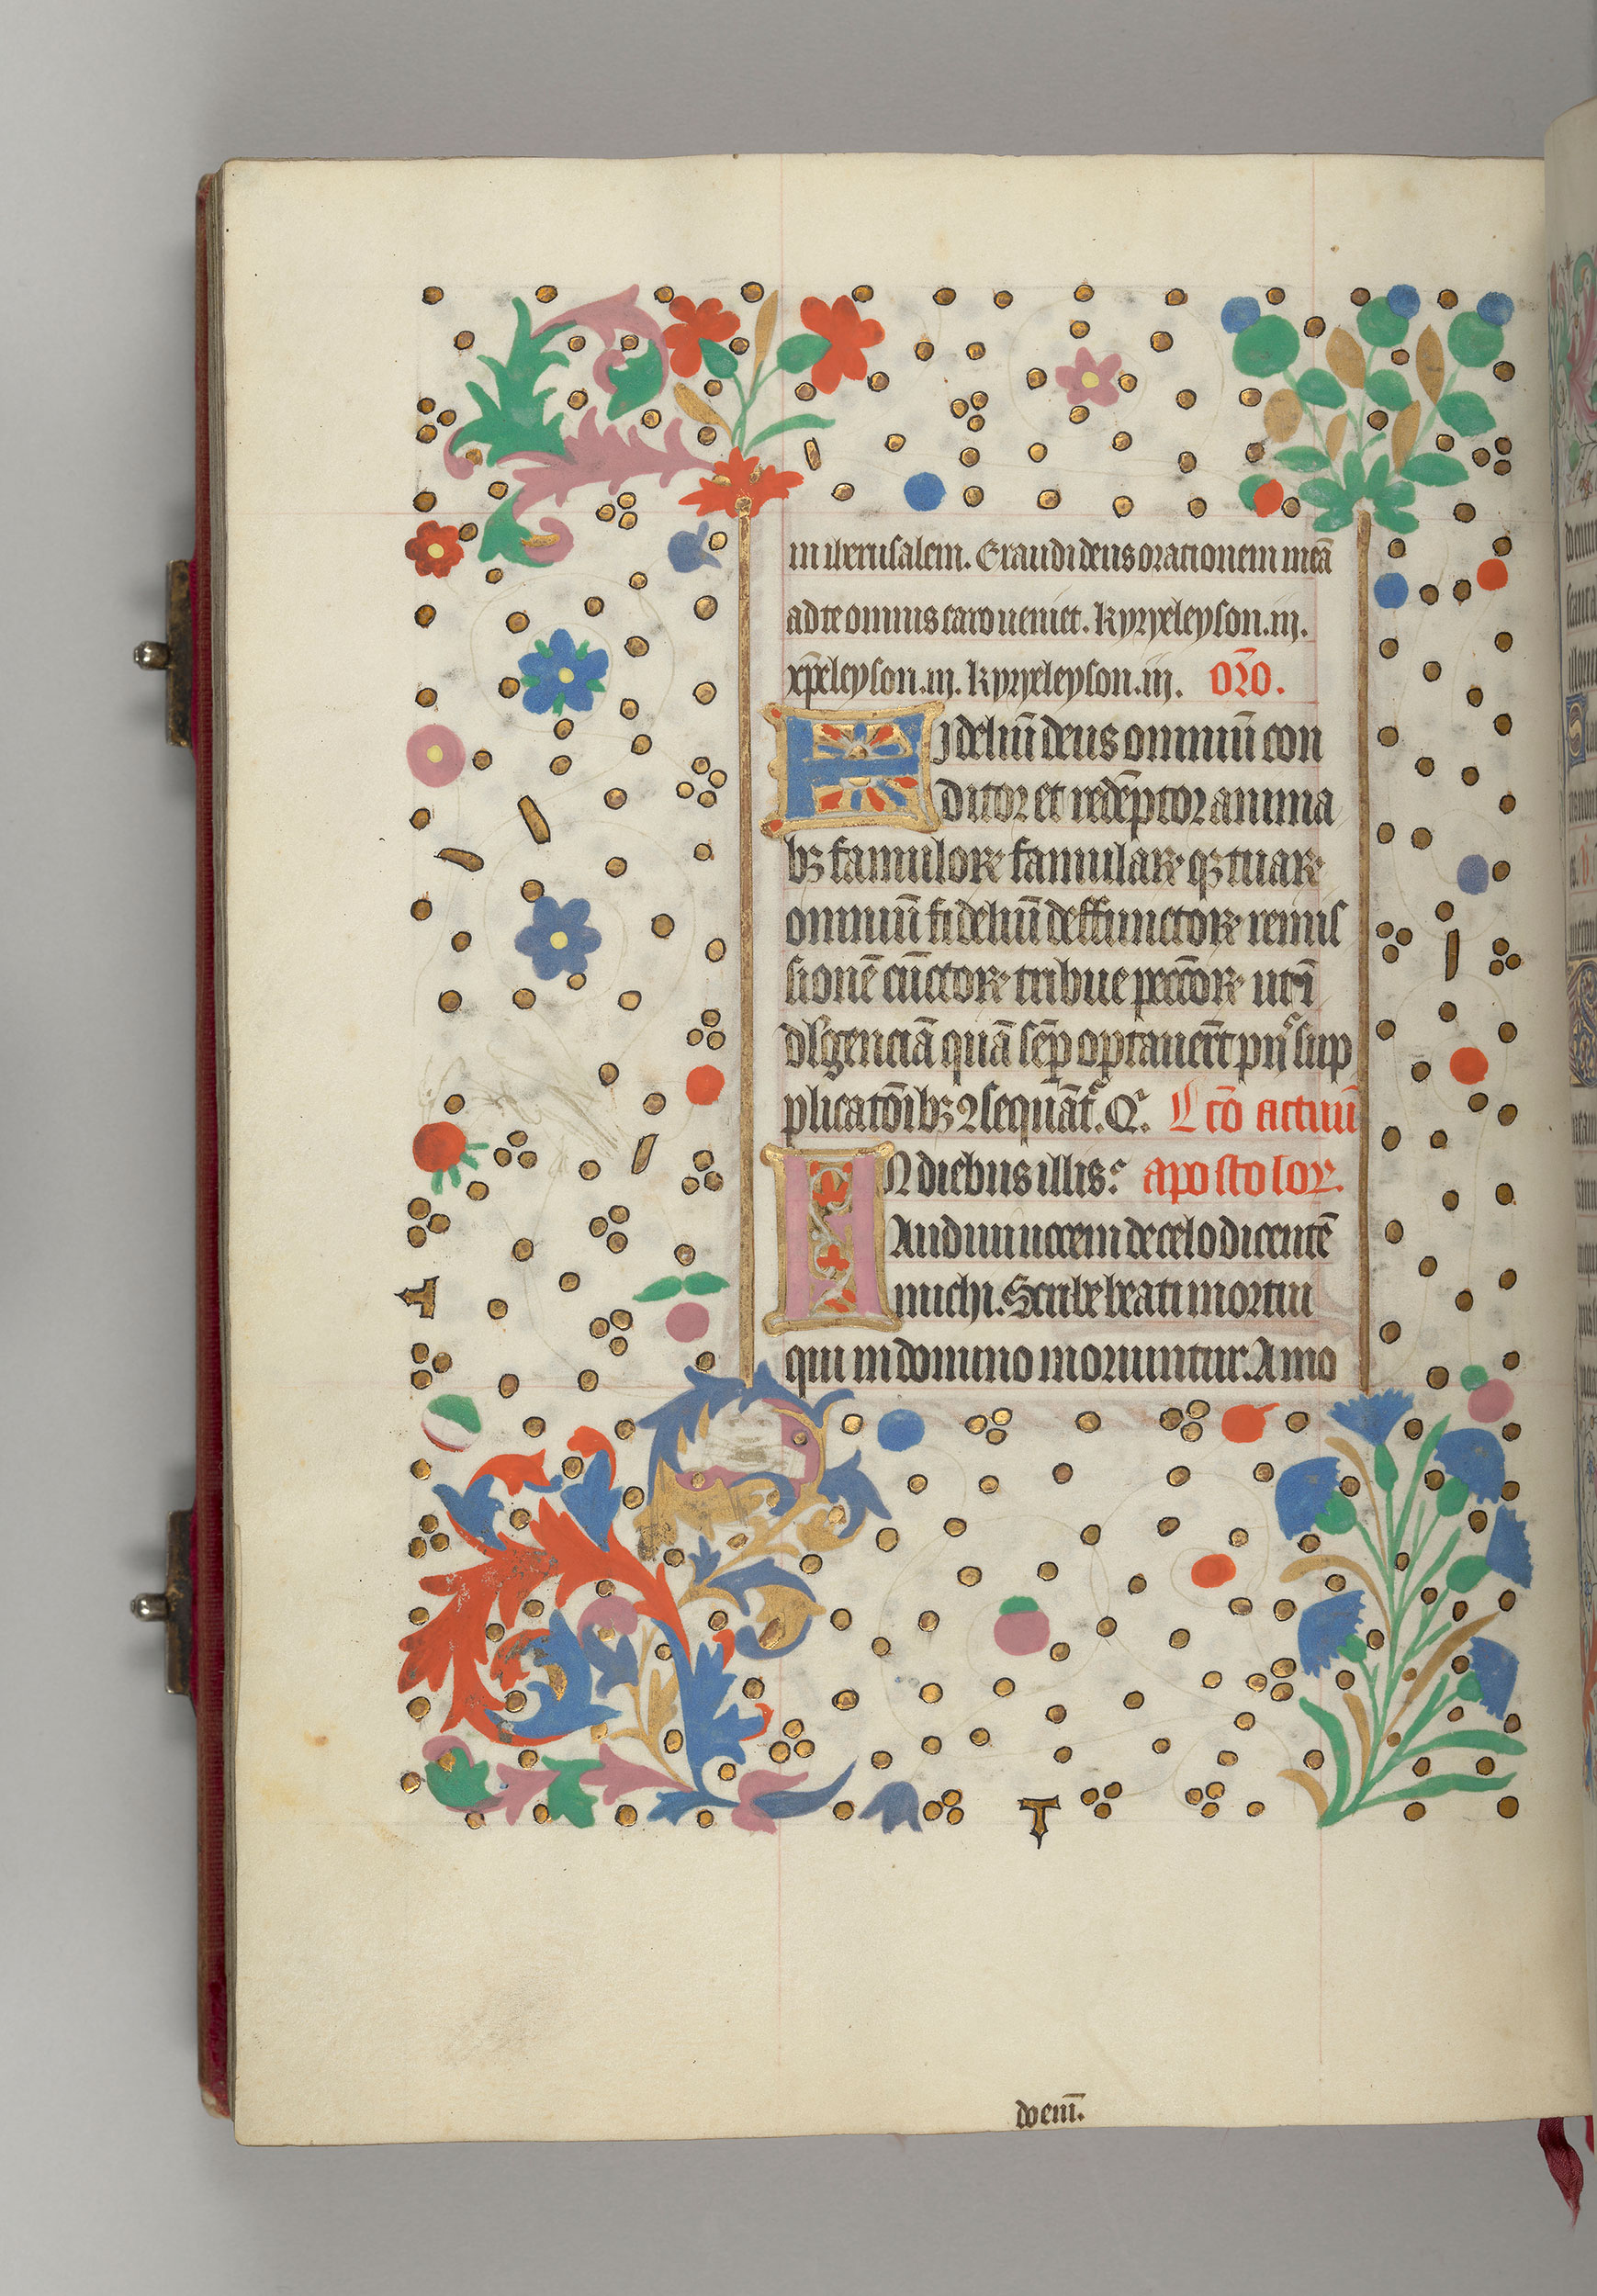 in iherusalem. Exaudi deus orationem meā
ad te omnis caro ueniet. kyryeleyson.iij.
xp̄eleyson.iij. kyryeleyson.iij. OR̄O.
Fideliū deus omniū con
ditor et redēptor anima
bꝫ famulorꝝ famularꝝ qꝫ tuarꝝ
omniū fideliū deffunctorꝝ remis
sionē cūctorꝝ tribue pecc̄orꝝ ut ī
dlgenciā quā sēp optauer̄t pijˢ sup
plicatōibꝫ ꝯsequāt᷑. Q͛. Lcō actuū
IN diebus illis: apostolorꝝ.
Audiui uocem de celo dicentē
michi. Scribe beati mortui
qui in domino moriuntur. Amo
do em̄.